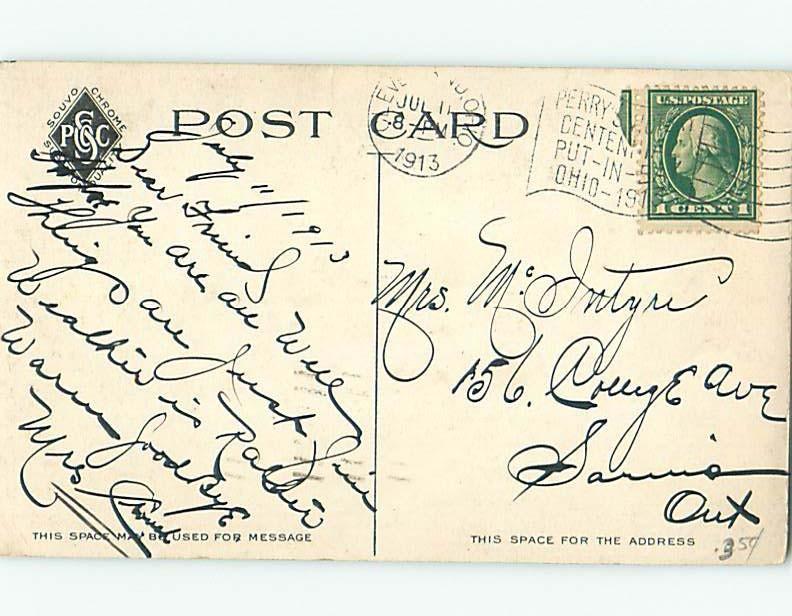 SOUVO CHROME
P S C
POST CARD
CLEVELAND, O.
JUL 11
8-
1913
PERRY-S
CENTEN
PUT-IN-
OHIO-19
U.S. POSTAGE
1 CENT 1
July 11/1913
Dear Friend
You are all Well
Things are Just Fine
Weather is Rather
Warm Good Bye
Mrs
Mrs. McIntyre
156. College Ave
Sarnia
Ont
THIS SPACE MAY BE USED FOR MESSAGE
THIS SPACE FOR THE ADDRESS
.35¢